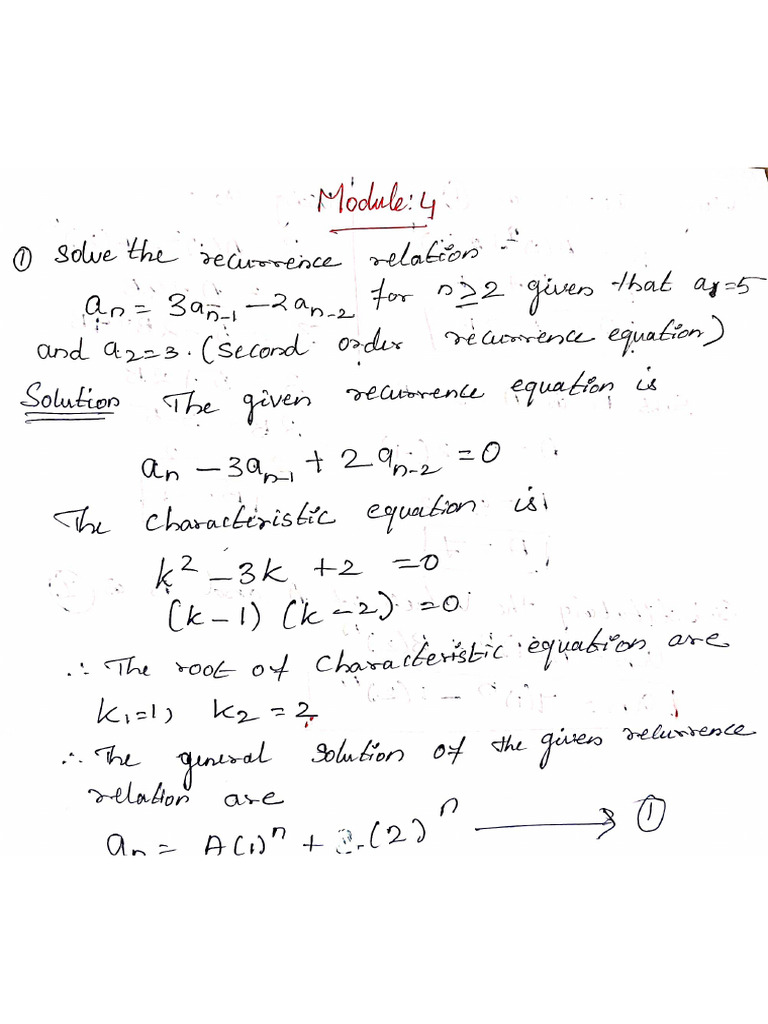 Module: 4
① Solve the recurrence relation
aₙ = 3aₙ₋₁ − 2aₙ₋₂ for n ≥ 2 given that a₁=5
and a₂=3. (Second order recurrence equation)
Solution The given recurrence equation is
aₙ − 3aₙ₋₁ + 2aₙ₋₂ = 0
The characteristic equation is
k² − 3k + 2 = 0
(k − 1) (k − 2) = 0
∴ The root of characteristic equation are
k₁=1, k₂ = 2
∴ The general solution of the given recurrence
relation are
aₙ = A(1)ⁿ + (2)ⁿ → ①